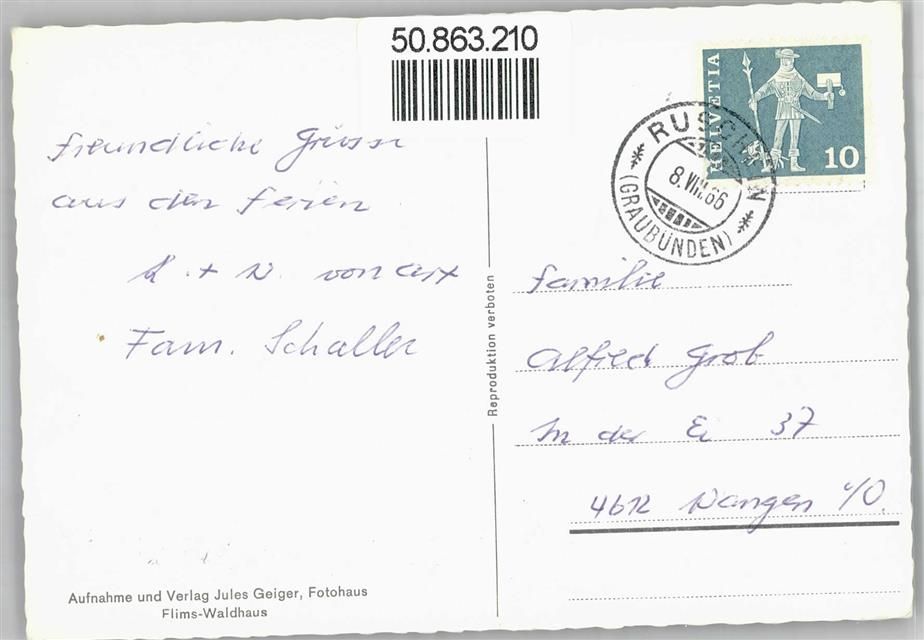 50.863.210
freundliche Grüsse
aus den Ferien
+
Fam. Schaller
Reproduktion verboten
HELVETIA
10
RUSCHEIN
8.VIII.66
(GRAUBÜNDEN)
Familie
Alfred Grob
In der Ei 37
4612 Wangen b/O.
Aufnahme und Verlag Jules Geiger, Fotohaus
Flims-Waldhaus